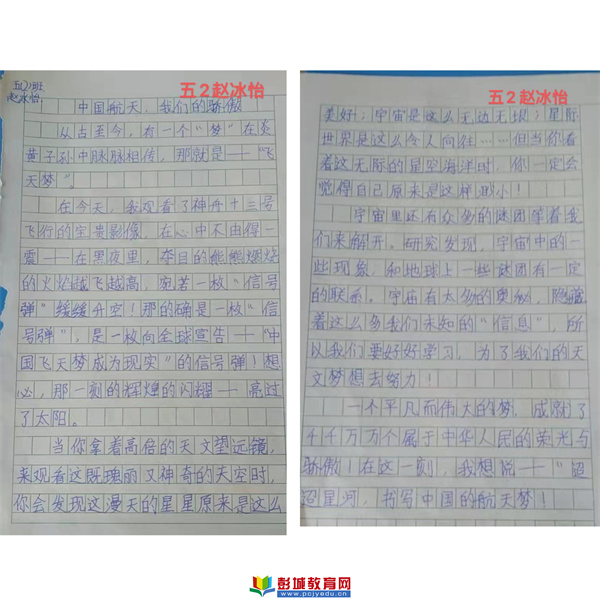 五(2)班
赵冰怡
五2赵冰怡
中国航天,我们的骄傲
从古至今,有一个“梦”在炎
黄子孙中脉脉相传,那就是——“飞
天梦”。
在今天,我观看了神舟十三号
飞行的宝贵影像,在心中不由得一
震——在黑夜里,夺目的熊熊燃烧
的火焰越飞越高,宛若一枚“信号
弹”缓缓升空!那的确是一枚“信
号弹”,是一枚向全球宣告——“中
国飞天梦成为现实”的信号弹!想
必,那一刻的辉煌的闪耀——亮过
了太阳。
当你拿着高倍的天文望远镜,
来观看这既瑰丽又神奇的天空时,
你会发现这漫天的星星原来是这么
五2赵冰怡
美好;宇宙是这么无边无垠;星际
世界是这么令人向往……但当你看
着这无际的星空海洋时,你一定会
觉得自己原来是这样渺小!
宇宙里还有众多的谜团等着我
们来解开。研究发现,宇宙中的一
些现象,和地球上一些谜团有一定
的联系。宇宙有太多的奥秘,隐藏
着这么多我们未知的“信息”,所
以我们要好好学习,为了我们的天
文梦想去努力!
一个平凡而伟大的梦,成就了
千千万万个属于中华人民的荣光与
骄傲!在这一刻,我想说——“迢
迢星河,书写中国的航天梦!
彭城教育网
www.pcjyedu.cn